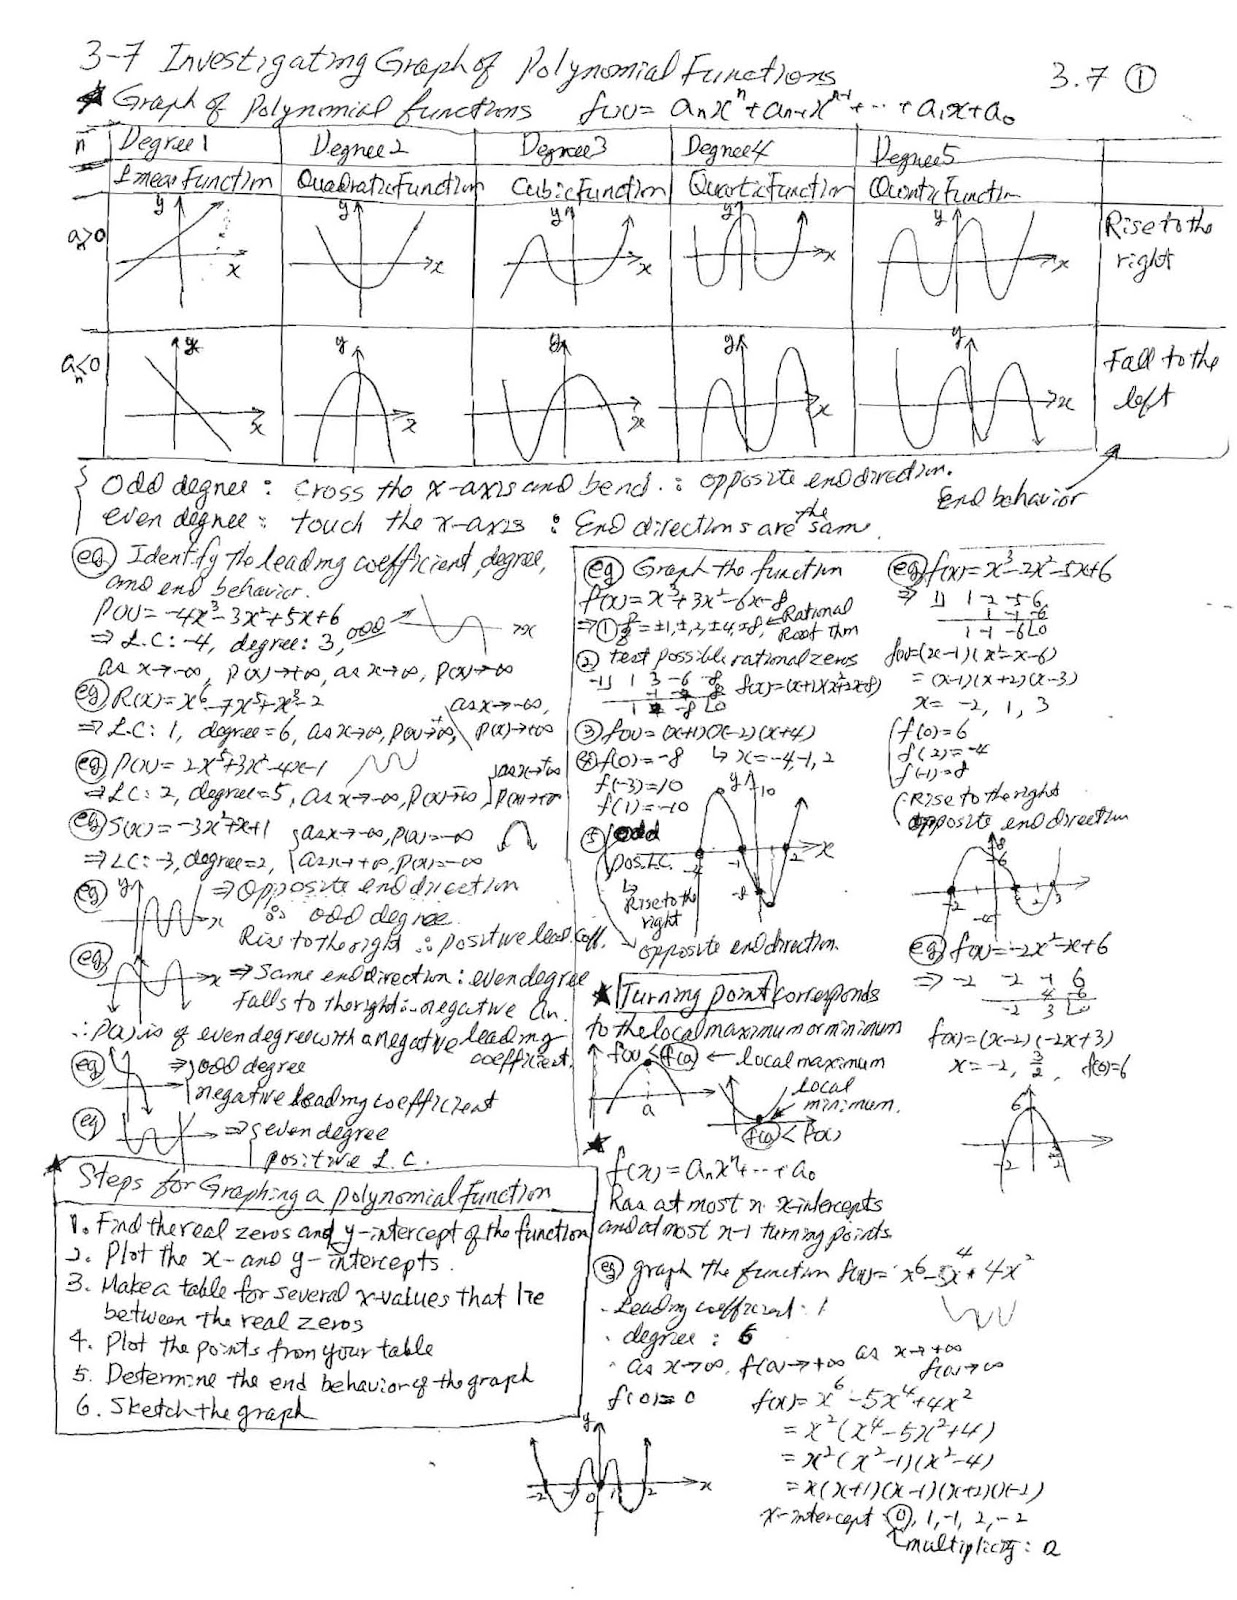 3-7 Investigating Graph of Polynomial Functions
3.7 ①
Graph of Polynomial functions f(x) = aₙxⁿ + aₙ₋₁xⁿ⁻¹ + ... + a₁x + a₀
n Degree 1 Degree 2 Degree 3 Degree 4 Degree 5
Linear Function Quadratic Function Cubic Function Quartic Function Quintic Function
aₙ>0 y x y x y x y x y x Rise to the right
aₙ<0 y x y x y x y x y x Fall to the left
odd degree: cross the x-axis and bend. : opposite end direction.
even degree: touch the x-axis : End directions are the same.
End behavior
eg Identify the leading coefficient, degree,
and end behavior.
P(x) = -4x³-3x²+5x+6
⇒ L.C: -4, degree: 3, odd
as x→-∞, P(x)→+∞, as x→∞, P(x)→-∞
eg R(x) = x⁶-7x⁵+x³-2
⇒ L.C: 1, degree=6, as x→∞, P(x)→+∞, as x→-∞, P(x)→+∞
eg P(x) = 2x⁵+3x²-4x-1
⇒ LC: 2, degree=5, as x→-∞, P(x)→-∞ as x→+∞ P(x)→+∞
eg S(x) = -3x²+x+1 as x→-∞, P(x)=-∞
⇒ LC: -3, degree=2, as x→+∞, P(x)=-∞
eg y x ⇒ Opposite end direction
∴ odd degree.
Rise to the right ∴ positive lead. coff.
eg x ⇒ Same end direction: even degree
Falls to the right ∴ negative an.
∴ P(x) is of even degree with a negative leading
coefficient.
eg ⇒ odd degree
negative leading coefficient
eg ⇒ even degree
positive L.C.
Steps for Graphing a polynomial Function
1. Find the real zeros and y-intercept of the function
2. Plot the x- and y-intercepts.
3. Make a table for several x-values that lie
between the real zeros
4. Plot the points from your table
5. Determine the end behavior of the graph
6. Sketch the graph
eg Graph the function
f(x) = x³+3x²-6x-8
⇒ ① = ±1, ±2, ±4, ±8, ← Rational
Root thm
② test possible rational zeros
-1) 1 3 -6 -8 f(x)=(x+1)(x²+2x-8)
-1 -2 8
1 2 -8 0
③ f(x) = (x+1)(x-2)(x+4)
④ f(0) = -8 ↳ x = -4, -1, 2
f(-3)=10
f(1)=-10
y 10
⑤ odd
pos. L.C.
-4 -1 2 x
-8
Rise to the
right
opposite end direction.
★ Turning point corresponds
to the local maximum or minimum
f(x) < f(a) ← local maximum
a
local
minimum.
f(a) < P(x)
★
f(x) = aₙxⁿ + ... + a₀
has at most n x-intercepts
and at most n-1 turning points
eg graph the function f(x) = x⁶-5x⁴+4x²
· Leading coefficient: 1
· degree: 6
· as x→∞, f(x)→+∞ as x→+∞ f(x)→∞
f(0) = 0 f(x) = x⁶-5x⁴+4x²
= x²(x⁴-5x²+4)
= x²(x²-1)(x²-4)
= x(x+1)(x-1)(x+2)(x-2)
x-intercept: 0, 1, -1, 2, -2
multiplicity: 2
y
-2 -1 0 1 2 x
eg f(x) = x³-2x²-5x+6
⇒ 1) 1 -2 -5 6
1 -1 -6
1 -1 -6 0
f(x)=(x-1)(x²-x-6)
= (x-1)(x+2)(x-3)
x = -2, 1, 3
f(0)=6
f(2)=-4
f(-1)=8
Rise to the right
opposite end direction
8
6
-2 1 3
-4
eg f(x) = -2x²-x+6
⇒ -2 -2 -1 6
4 -6
-2 3 0
f(x)=(x-2)(-2x+3)
x = -2, 3/2, f(0)=6
6
-2 3/2